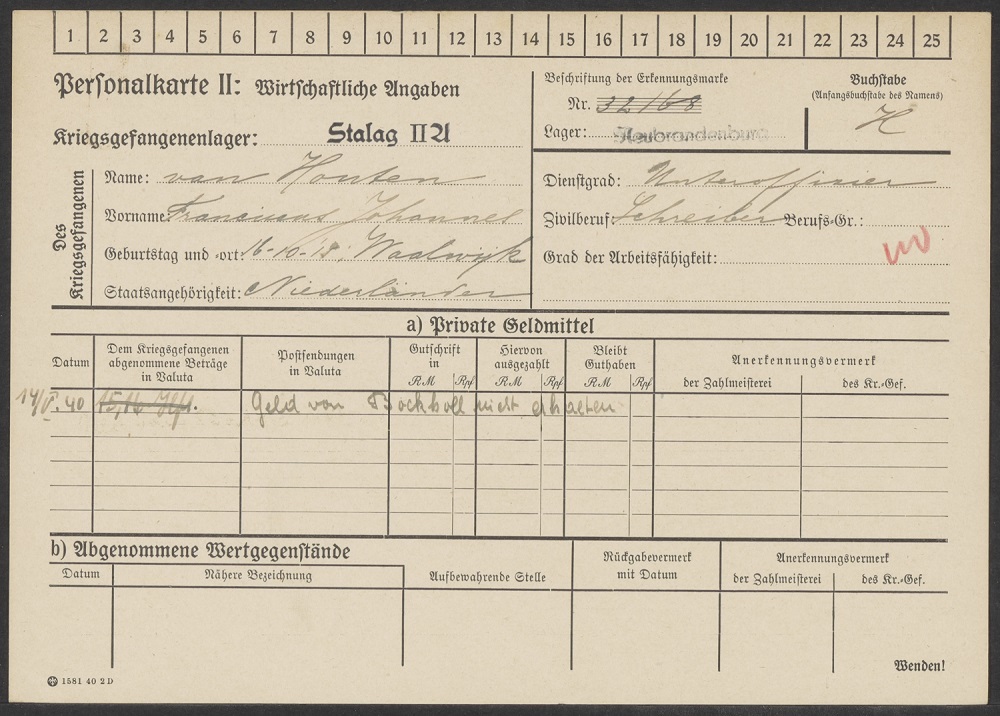 1 2 3 4 5 6 7 8 9 10 11 12 13 14 15 16 17 18 19 20 21 22 23 24 25
Personalkarte II: Wirtschaftliche Angaben
Kriegsgefangenenlager: Stalag II A
Beschriftung der Erkennungsmarke
Nr. 32168
Lager: Neubrandenburg
Buchstabe
(Anfangsbuchstabe des Namens)
H
Des Kriegsgefangenen
Name: van Houten
Vorname: Franciscus Johannes
Geburtstag und -ort: 16-10-18. Waalwijk
Staatsangehörigkeit: Niederländer
Dienstgrad: Unteroffizier
Zivilberuf: Schreiber Berufs-Gr.:
Grad der Arbeitsfähigkeit:
a) Private Geldmittel
Datum
Dem Kriegsgefangenen abgenommene Beträge in Valuta
Postsendungen in Valuta
Gutschrift in RM Rpf
Hiervon ausgezahlt RM Rpf
Bleibt Guthaben RM Rpf
Anerkennungsvermerk
der Zahlmeisterei des Kr.-Gef.
14/V. 40 Geld von Bockholt nicht erhalten
b) Abgenommene Wertgegenstände
Datum
Nähere Bezeichnung
Aufbewahrende Stelle
Rückgabevermerk mit Datum
Anerkennungsvermerk
der Zahlmeisterei des Kr.-Gef.
Wenden!
1581 40 2 D